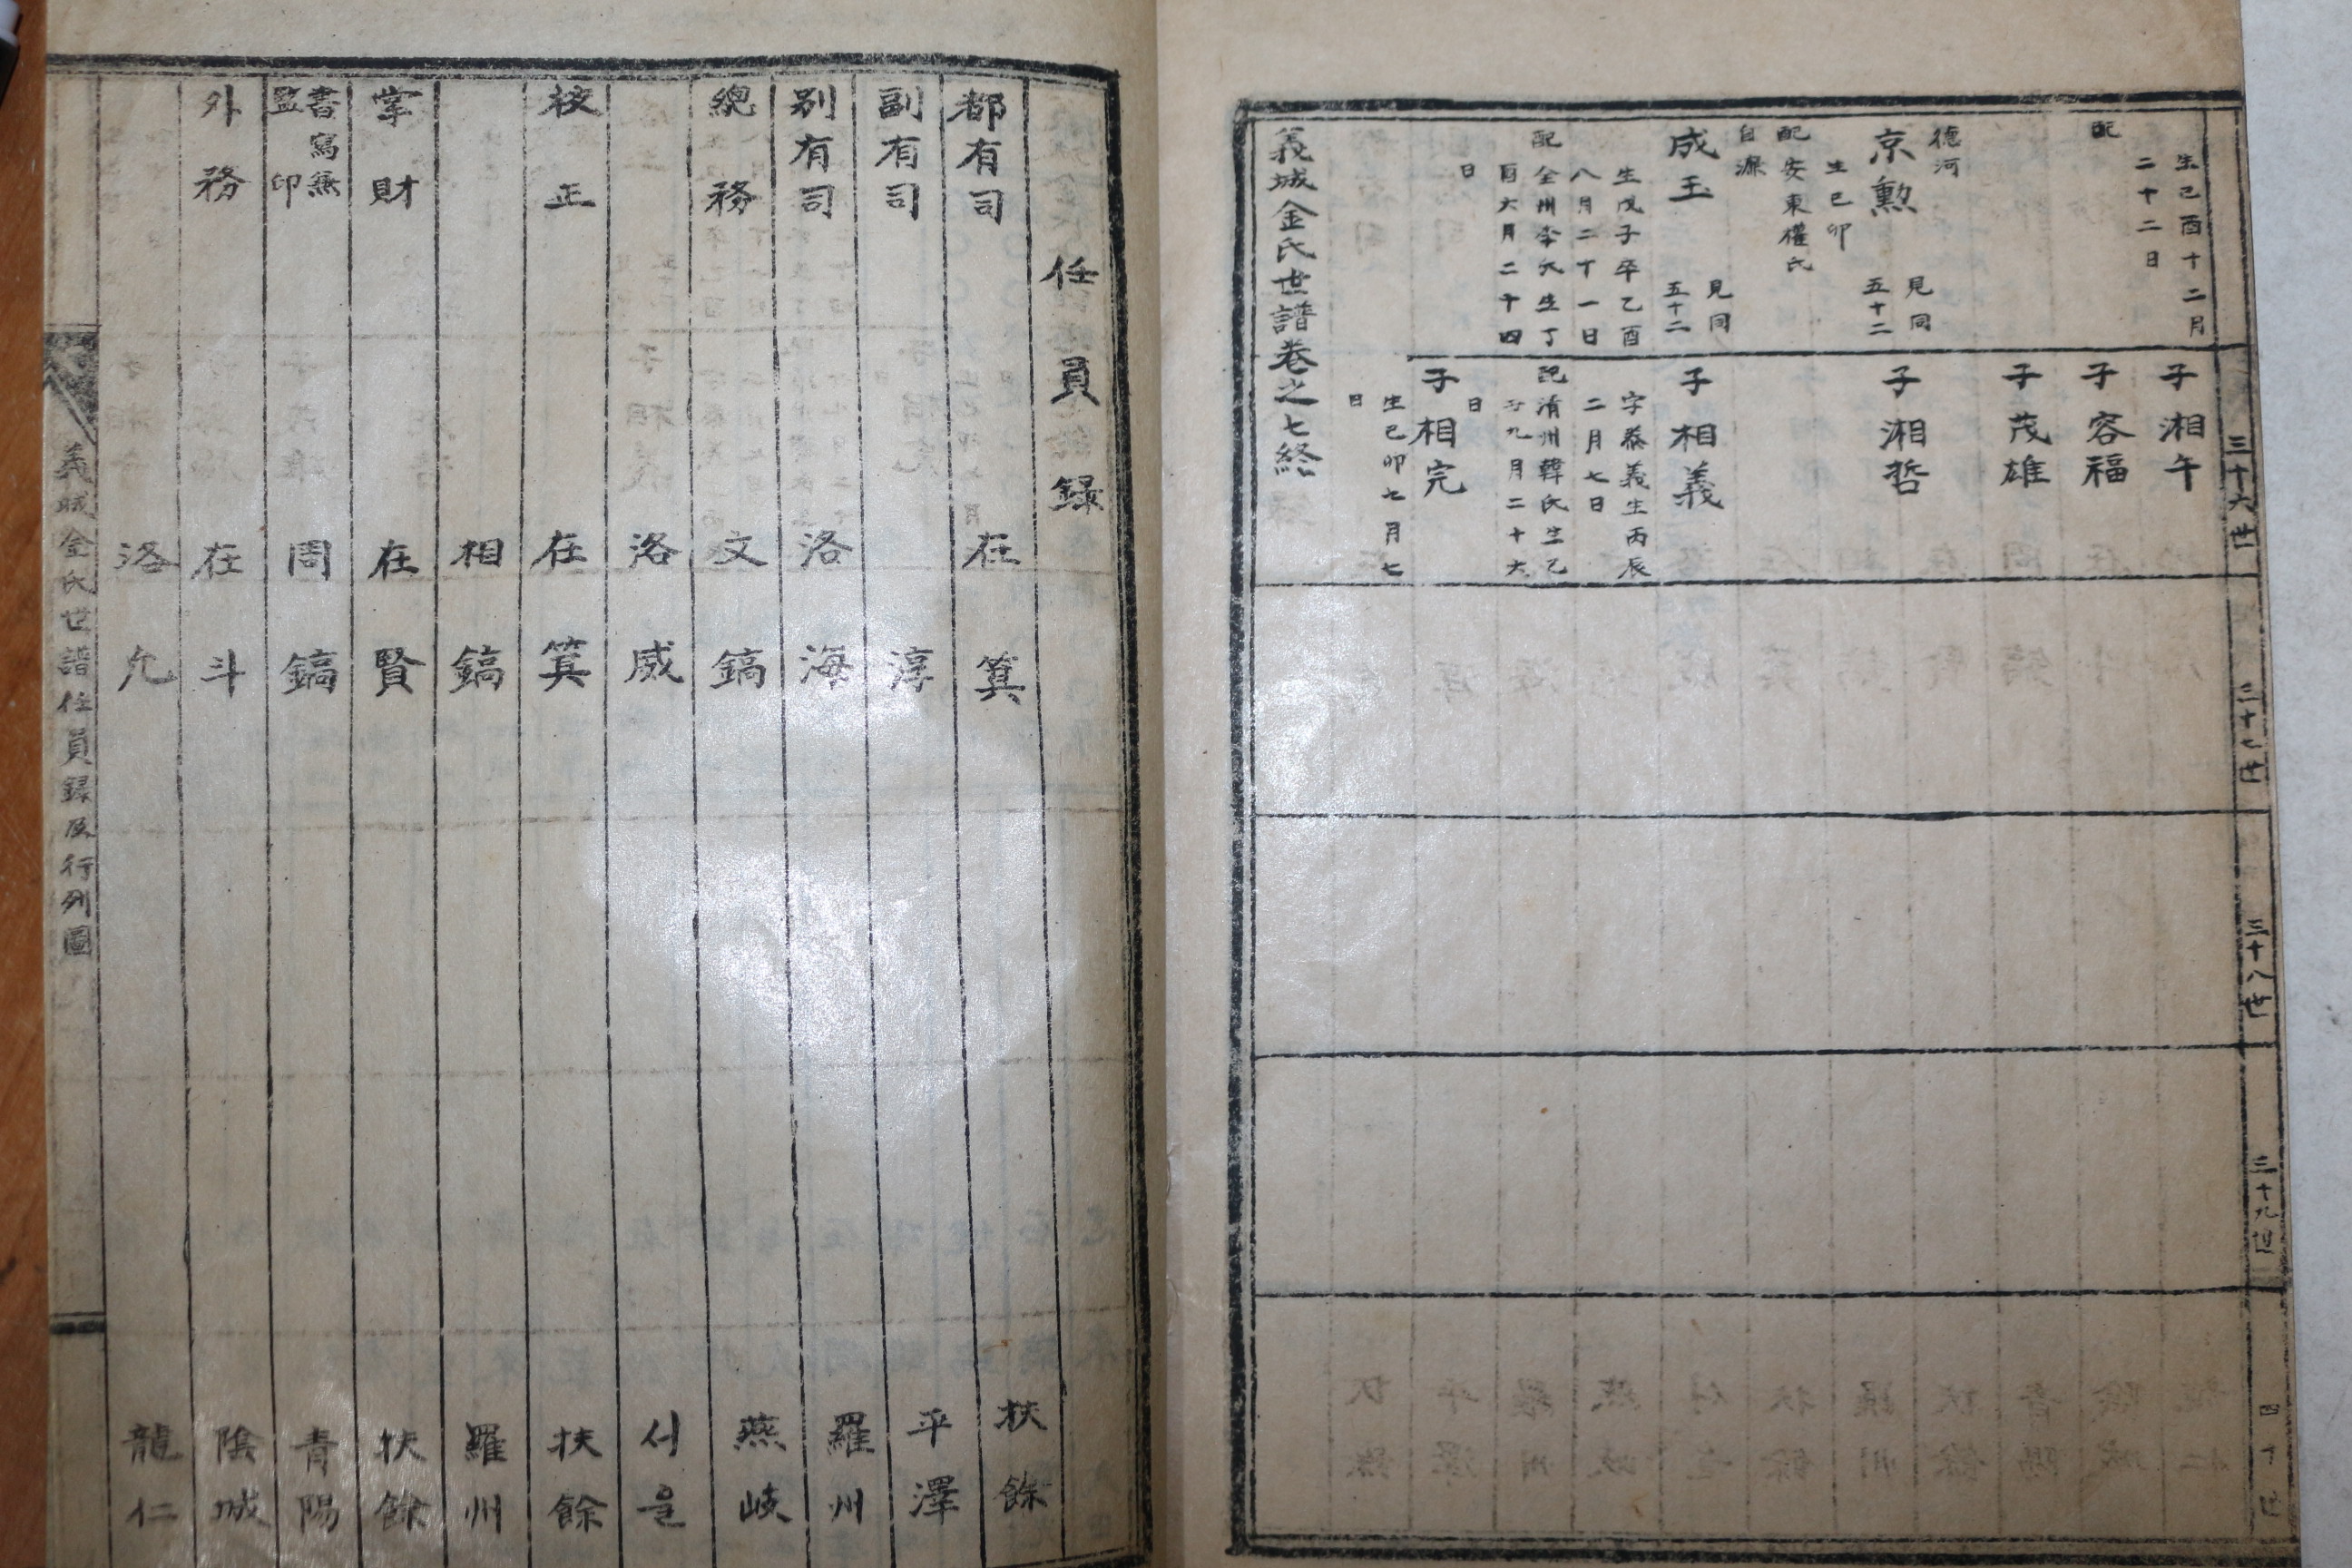 三十六世
三十七世
三十八世
三十九世
四十世
生己酉十二月
二十二日
配
德河
京勲
見同
五十二
生己卯
配安東權氏
自源
成玉
見同
五十二
生戊子卒乙酉
八月二十一日
配全州李氏生丁
酉六月二十四
日
子湘午
子容福
子茂雄
子湘哲
子相義
字泰義生丙辰
二月七日
配清州韓氏生己
九月二十六
日
子相完
生己卯七月七
日
義城金氏世譜卷之七終
任員録
都有司 在箕 扶餘
副有司 淳 平澤
別有司 洛海 羅州
總務 文鎬 燕岐
洛威 서울
校正 在箕 扶餘
相鎬 羅州
掌財 在賢 扶餘
書寫無
監印 周鎬 青陽
外務 在斗 陰城
洛允 龍仁
義城金氏世譜任員録及行列圖